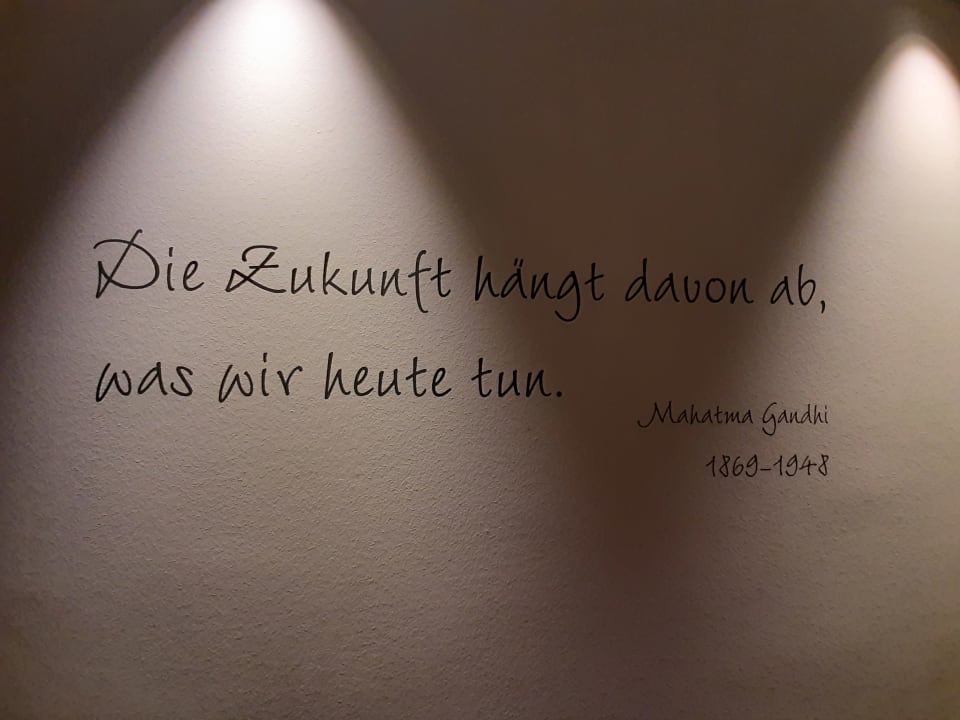 Die Zukunft hängt davon ab,
was wir heute tun.
Mahatma Gandhi
1869-1948